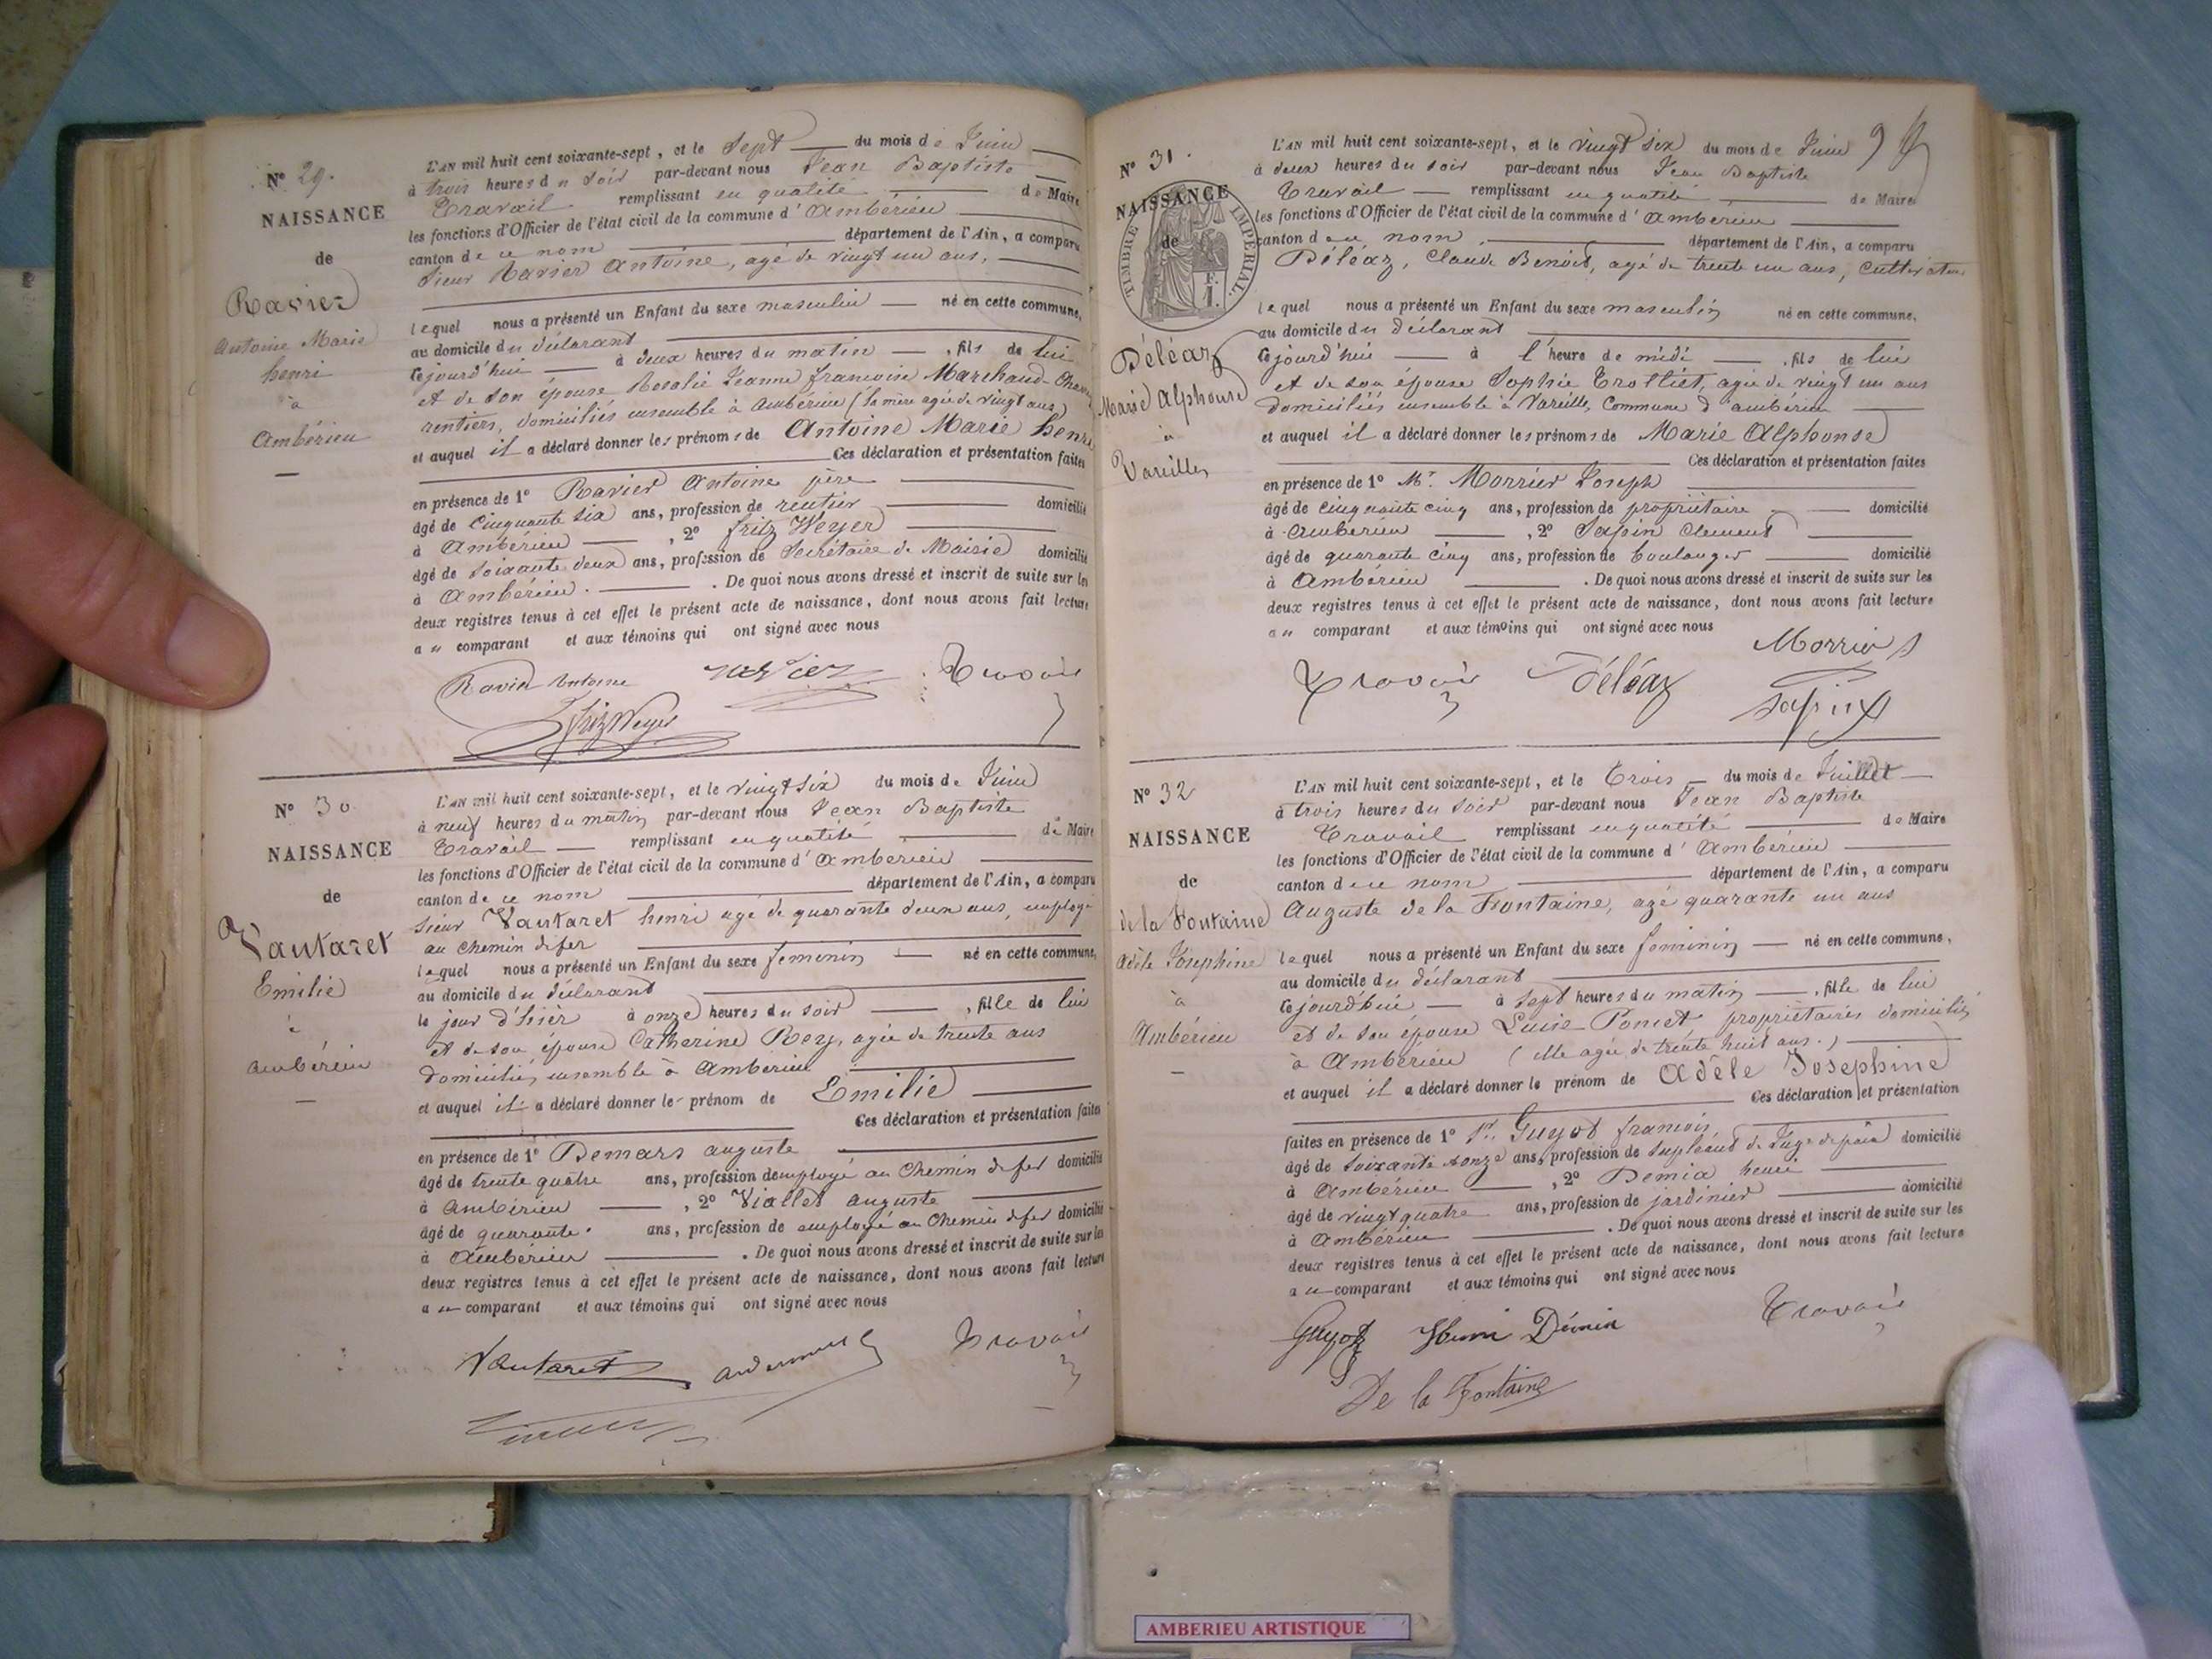 N° 29.
NAISSANCE
de
Ravier
Antoine Marie
henri
à
Ambérieu
L'AN mil huit cent soixante-sept, et le Sept du mois de Juin
à trois heures du Soir par-devant nous Jean Baptiste
Travail remplissant en qualité de Maire
les fonctions d'Officier de l'état civil de la commune d'Ambérieu
canton de ce nom département de l'Ain, a comparu
Sieur Ravier Antoine, agé de vingt un ans,
lequel nous a présenté un Enfant du sexe masculin né en cette commune,
au domicile du déclarant
cejourd'hui à deux heures du matin, fils de lui
et de son épouse Rosalie Jeanne francoise Marchand
rentiers, domiciliés ensemble à Ambérieu (la mère agée de vingt ans)
et auquel il a déclaré donner les prénoms de Antoine Marie henri
Ces déclaration et présentation faites
en présence de 1° Ravier Antoine père
âgé de Cinquante six ans, profession de rentier domicilié
à Ambérieu, 2° fritz Weyer
âgé de soixante deux ans, profession de Secrétaire de Mairie domicilié
à Ambérieu. De quoi nous avons dressé et inscrit de suite sur les
deux registres tenus à cet effet le présent acte de naissance, dont nous avons fait lecture
au comparant et aux témoins qui ont signé avec nous
Ravier Antoine Ravier Travail
Fritz Weyer
N° 30
NAISSANCE
de
Vautaret
Emilie
à
Ambérieu
L'AN mil huit cent soixante-sept, et le vingt six du mois de Juin
à neuf heures du matin par-devant nous Jean Baptiste
Travail remplissant en qualité de Maire
les fonctions d'Officier de l'état civil de la commune d'Ambérieu
canton de ce nom département de l'Ain, a comparu
Sieur Vautaret henri agé de quarante deux ans, employé
au chemin de fer
lequel nous a présenté un Enfant du sexe feminin né en cette commune,
au domicile du déclarant
le jour d'hier à onze heures du soir, fille de lui
et de son épouse Catherine Rey, agée de trente ans
domiciliés ensemble à Ambérieu
et auquel il a déclaré donner le prénom de Emilie
Ces déclaration et présentation faites
en présence de 1° Demars auguste
âgé de trente quatre ans, profession de employé au Chemin de fer domicilié
à Ambérieu, 2° Viallet auguste
âgé de quarante ans, profession de employé au Chemin de fer domicilié
à Ambérieu. De quoi nous avons dressé et inscrit de suite sur les
deux registres tenus à cet effet le présent acte de naissance, dont nous avons fait lecture
au comparant et aux témoins qui ont signé avec nous
Vautaret Travail
N° 31.
NAISSANCE
de
TIMBRE IMPERIAL
Déléaz
Marie Alphonse
à
Vareilles
L'AN mil huit cent soixante-sept, et le vingt six du mois de Juin 9
à deux heures du soir par-devant nous Jean Baptiste
Travail remplissant en qualité de Maire
les fonctions d'Officier de l'état civil de la commune d'Ambérieu
canton de ce nom, département de l'Ain, a comparu
Déléaz, Claude Benoit, agé de trente un ans, Cultivateur
lequel nous a présenté un Enfant du sexe masculin né en cette commune,
au domicile du déclarant
cejourd'hui à l'heure de midi, fils de lui
et de son épouse Sophie Trolliet, agée de vingt un ans
domiciliés ensemble à Vareille, Commune d'ambérieu
et auquel il a déclaré donner les prénoms de Marie Alphonse
Ces déclaration et présentation faites
en présence de 1° Mr. Morrier Joseph
âgé de cinquante cinq ans, profession de propriétaire domicilié
à Ambérieu, 2° Sapin Clement
âgé de quarante cinq ans, profession de boulanger domicilié
à Ambérieu. De quoi nous avons dressé et inscrit de suite sur les
deux registres tenus à cet effet le présent acte de naissance, dont nous avons fait lecture
au comparant et aux témoins qui ont signé avec nous
Morrier
Travail Déléaz Sapin
N° 32
NAISSANCE
de
de la Fontaine
Adèle Josephine
à
Ambérieu
L'AN mil huit cent soixante-sept, et le Trois du mois de Juillet
à trois heures du soir par-devant nous Jean Baptiste
Travail remplissant en qualité de Maire
les fonctions d'Officier de l'état civil de la commune d'Ambérieu
canton de ce nom département de l'Ain, a comparu
Auguste de la Fontaine, agé quarante un ans
lequel nous a présenté un Enfant du sexe feminin né en cette commune,
au domicile du déclarant
cejourd'hui à sept heures du matin, fille de lui
et de son épouse Luise Poncet propriétaires domiciliés
à Ambérieu (elle agée de trente huit ans.)
et auquel il a déclaré donner le prénom de Adèle Josephine
Ces déclaration et présentation
faites en présence de 1° Sr. Guyot francois
âgé de soixante onze ans, profession de Supléant de Juge de paix domicilié
à Ambérieu, 2° Demia henri
âgé de vingt quatre ans, profession de jardinier domicilié
à Ambérieu. De quoi nous avons dressé et inscrit de suite sur les
deux registres tenus à cet effet le présent acte de naissance, dont nous avons fait lecture
au comparant et aux témoins qui ont signé avec nous
Guyot Henri Démia Travail
De la Fontaine
AMBERIEU ARTISTIQUE